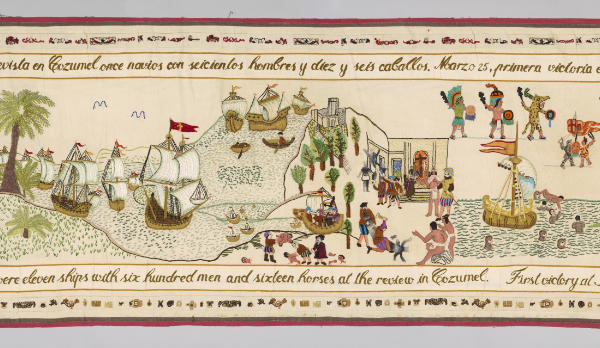 evista en Cozumel, once navios con seicientos hombres y diez y seis caballos. Marzo 25, primera victoria e
were eleven ships with six hundred men and sixteen horses at the review in Cozumel. First victory at